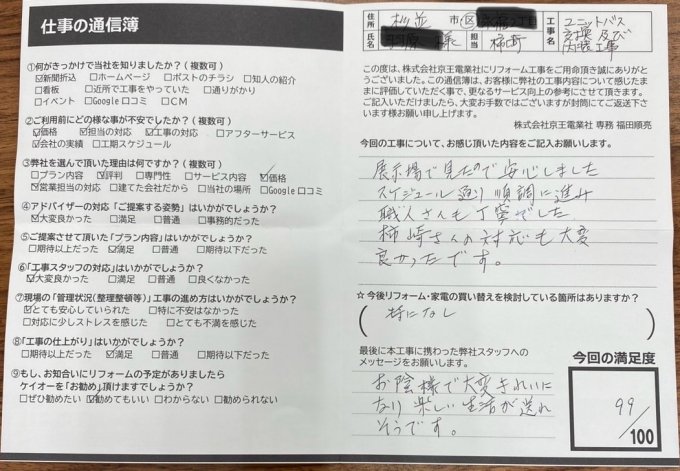 仕事の通信簿
①何がきっかけで当社を知りましたか?(複数可)
☑新聞折込 □ホームページ □ポストのチラシ □知人の紹介
□看板 □近所で工事をやっていた □通りがかり
□イベント □Google口コミ □CM
②ご利用前にどの様な事が不安でしたか?(複数可)
☑価格 ☑担当の対応 ☑工事の対応 □アフターサービス
☑会社の実績 □工期スケジュール
③弊社を選んで頂いた理由は何ですか?(複数可)
□プラン内容 ☑評判 □専門性 □サービス内容 ☑価格
☑営業担当の対応 □建てた会社だから □当社の場所 □Google口コミ
④アドバイザーの対応「ご提案する姿勢」はいかがでしょうか?
☑大変良かった □満足 □普通 □事務的だった
⑤ご提案させて頂いた「プラン内容」はいかがでしょうか?
□期待以上だった ☑満足 □普通 □期待以下だった
⑥「工事スタッフの対応」はいかがでしょうか?
☑大変良かった □満足 □普通 □良くなかった
⑦現場の「管理状況(整理整頓等)」工事の進め方はいかがでしょうか?
☑とても安心していられた □特に不安はなかった
□対応に少しストレスを感じた □とても不満を感じた
⑧「工事の仕上がり」はいかがでしょうか?
□期待以上だった ☑満足 □普通 □期待以下だった
⑨もし、お知合いにリフォームの予定がありましたら
ケイオーを「お勧め」頂けますでしょうか?
□ぜひ勧めたい ☑勧めてもいい □わからない □勧められない
住所 杉並 市 区
氏名 様 担当 柿崎
工事名 ユニットバス
内装工事
この度は、株式会社京王電業社にリフォーム工事をご用命頂き誠にありがと
うございました。この通信簿は、お客様に弊社の工事内容について感じたま
まに評価していただく事で、更なるサービス向上の参考にさせて頂きます。
ご記入いただけましたら、大変お手数ではございますが封筒にてご返送下さ
います様お願い申し上げます。
株式会社京王電業社 専務 福田順亮
今回の工事について、お感じ頂いた内容をご記入お願いします。
展示場で見たので安心しました
スケジュール通り順調に進み
職人さんも丁寧でした
柿崎さんの対応も大変
良かったです。
☆今後リフォーム・家電の買い替えを検討している箇所はありますか?
(特になし)
最後に本工事に携わった弊社スタッフへの
メッセージをお願いします。
お陰様で大変きれいに
なり楽しい生活が送れ
そうです。
今回の満足度
99/100